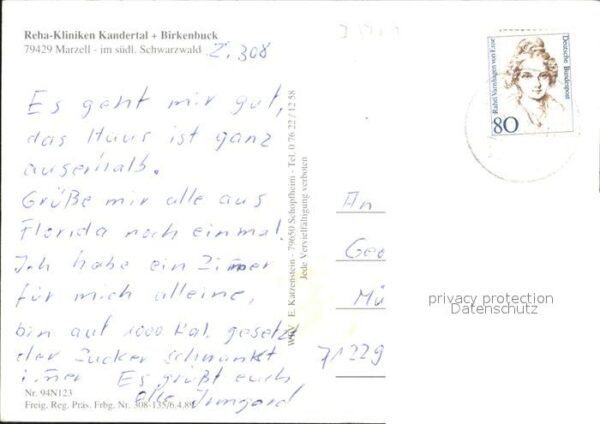 Reha-Kliniken Kandertal + Birkenbuck
79429 Marzell - im südl. Schwarzwald
Z. 308
Es geht mir gut,
das Haus ist ganz
auserhalb.
Grüße mir alle aus
Florida noch einmal.
Ich habe ein Zimer
für mich alleine,
bin auf 1000 Kal. gesetzt
der Zucker schwankt
imer Es grüßt euch
alle Irmgard
Nr. 94N123
Freig. Reg. Präs. Frbg. Nr. 308-135/6.4.89
WRV E. Katzenstein - 79650 Schopfheim - Tel. 0 76 22 / 12 58
Jede Vervielfältigung verboten
Rahel Varnhagen von Ense
Deutsche Bundespost
80
An
Geo
Mü
71229
privacy protection
Datenschutz